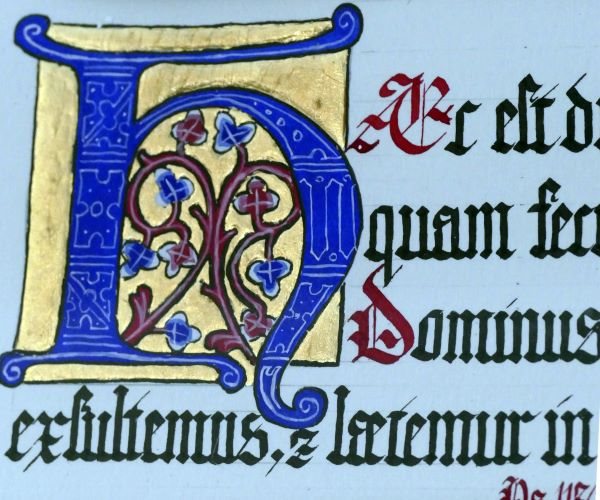 HÆc eſt di
quam feci
Dominus
exſultemus, ⁊ lætemur in
Ps. 118